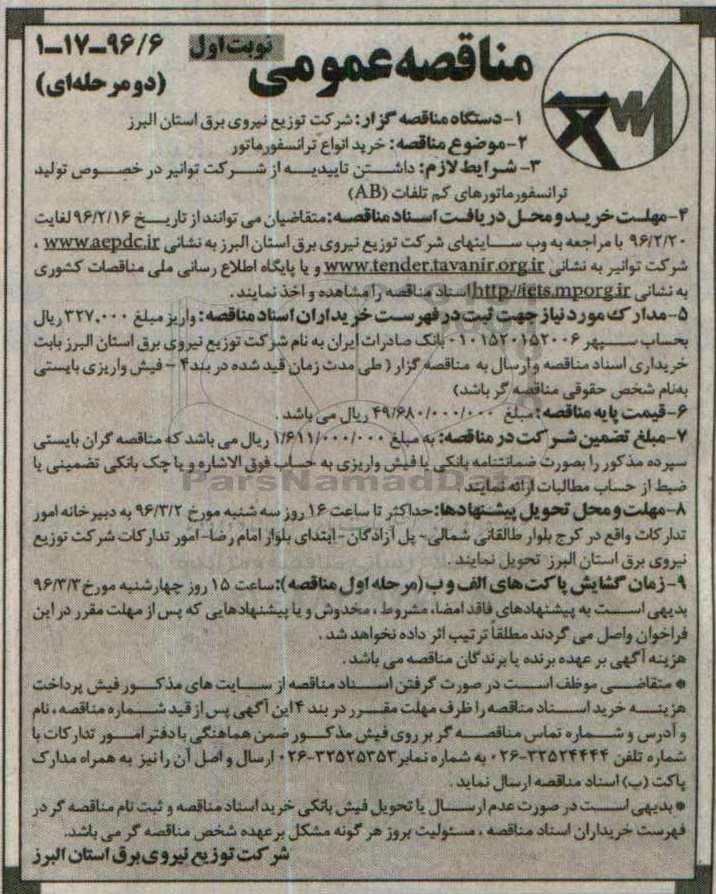 نوبت اول
۹۶/۶-۱۷-۱
مناقصه عمومی
(دو مرحله‌ای)
۱-دستگاه مناقصه گزار: شرکت توزیع نیروی برق استان البرز
۲-موضوع مناقصه: خرید انواع ترانسفورماتور
۳- شرایط لازم: داشتن تاییدیه از شرکت توانیر در خصوص تولید
ترانسفورماتورهای کم تلفات (AB)
۴-مهلت خرید و محل دریافت اسناد مناقصه: متقاضیان می توانند از تاریخ ۹۶/۲/۱۶ لغایت
۹۶/۲/۲۰ با مراجعه به وب سایتهای شرکت توزیع نیروی برق استان البرز به نشانی www.aepdc.ir ،
شرکت توانیر به نشانی www.tender.tavanir.org.ir و یا پایگاه اطلاع رسانی ملی مناقصات کشوری
به نشانی http://iets.mporg.ir اسناد مناقصه را مشاهده و اخذ نمایند.
۵-مدارک مورد نیاز جهت ثبت در فهرست خریداران اسناد مناقصه: واریز مبلغ ۳۲۷,۰۰۰ ریال
بحساب سپهر ۰۱۰۱۵۲۰۱۵۲۰۰۶ بانک صادرات ایران به نام شرکت توزیع نیروی برق استان البرز بابت
خریداری اسناد مناقصه و ارسال به مناقصه گزار (طی مدت زمان قید شده در بند ۴ - فیش واریزی بایستی
به‌نام شخص حقوقی مناقصه گر باشد)
۶-قیمت پایه مناقصه: مبلغ ۴۹/۶۸۰/۰۰۰/۰۰۰ ریال می باشد .
۷-مبلغ تضمین شرکت در مناقصه: به مبلغ ۱/۶۱۱/۰۰۰/۰۰۰ ریال می باشد که مناقصه گران بایستی
سپرده مذکور را بصورت ضمانتنامه بانکی یا فیش واریزی به حساب فوق الاشاره و یا چک بانکی تضمینی یا
ضبط از حساب مطالبات ارائه نمایند .
ParsNamadData
۸-مهلت و محل تحویل پیشنهادها: حداکثر تا ساعت ۱۶ روز سه شنبه مورخ ۹۶/۳/۲ به دبیرخانه امور
تدارکات واقع در کرج بلوار طالقانی شمالی- پل آزادگان-ابتدای بلوار امام رضا-امور تدارکات شرکت توزیع
نیروی برق استان البرز تحویل نمایند .
۹-زمان گشایش پاکت های الف و ب (مرحله اول مناقصه): ساعت ۱۵ روز چهارشنبه مورخ ۹۶/۳/۳
بدیهی است به پیشنهادهای فاقد امضا، مشروط ، مخدوش و یا پیشنهادهایی که پس از مهلت مقرر در این
فراخوان واصل می گردند مطلقاً ترتیب اثر داده نخواهد شد .
هزینه آگهی بر عهده برنده یا برندگان مناقصه می باشد .
* متقاضی موظف است در صورت گرفتن اسناد مناقصه از سایت های مذکور فیش پرداخت
هزینه خرید اسناد مناقصه را ظرف مهلت مقرر در بند ۴ این آگهی پس از قید شماره مناقصه ، نام
و آدرس و شماره تماس مناقصه گر بر روی فیش مذکور ضمن هماهنگی با دفتر امور تدارکات با
شماره تلفن ۳۲۵۲۴۴۴۴-۰۲۶ به شماره نمابر ۳۲۵۲۵۳۵۳-۰۲۶ ارسال و اصل آن را نیز به همراه مدارک
پاکت (ب) اسناد مناقصه ارسال نماید .
* بدیهی است در صورت عدم ارسال یا تحویل فیش بانکی خرید اسناد مناقصه و ثبت نام مناقصه گر در
فهرست خریداران اسناد مناقصه ، مسئولیت بروز هر گونه مشکل بر عهده شخص مناقصه گر می باشد.
شرکت توزیع نیروی برق استان البرز